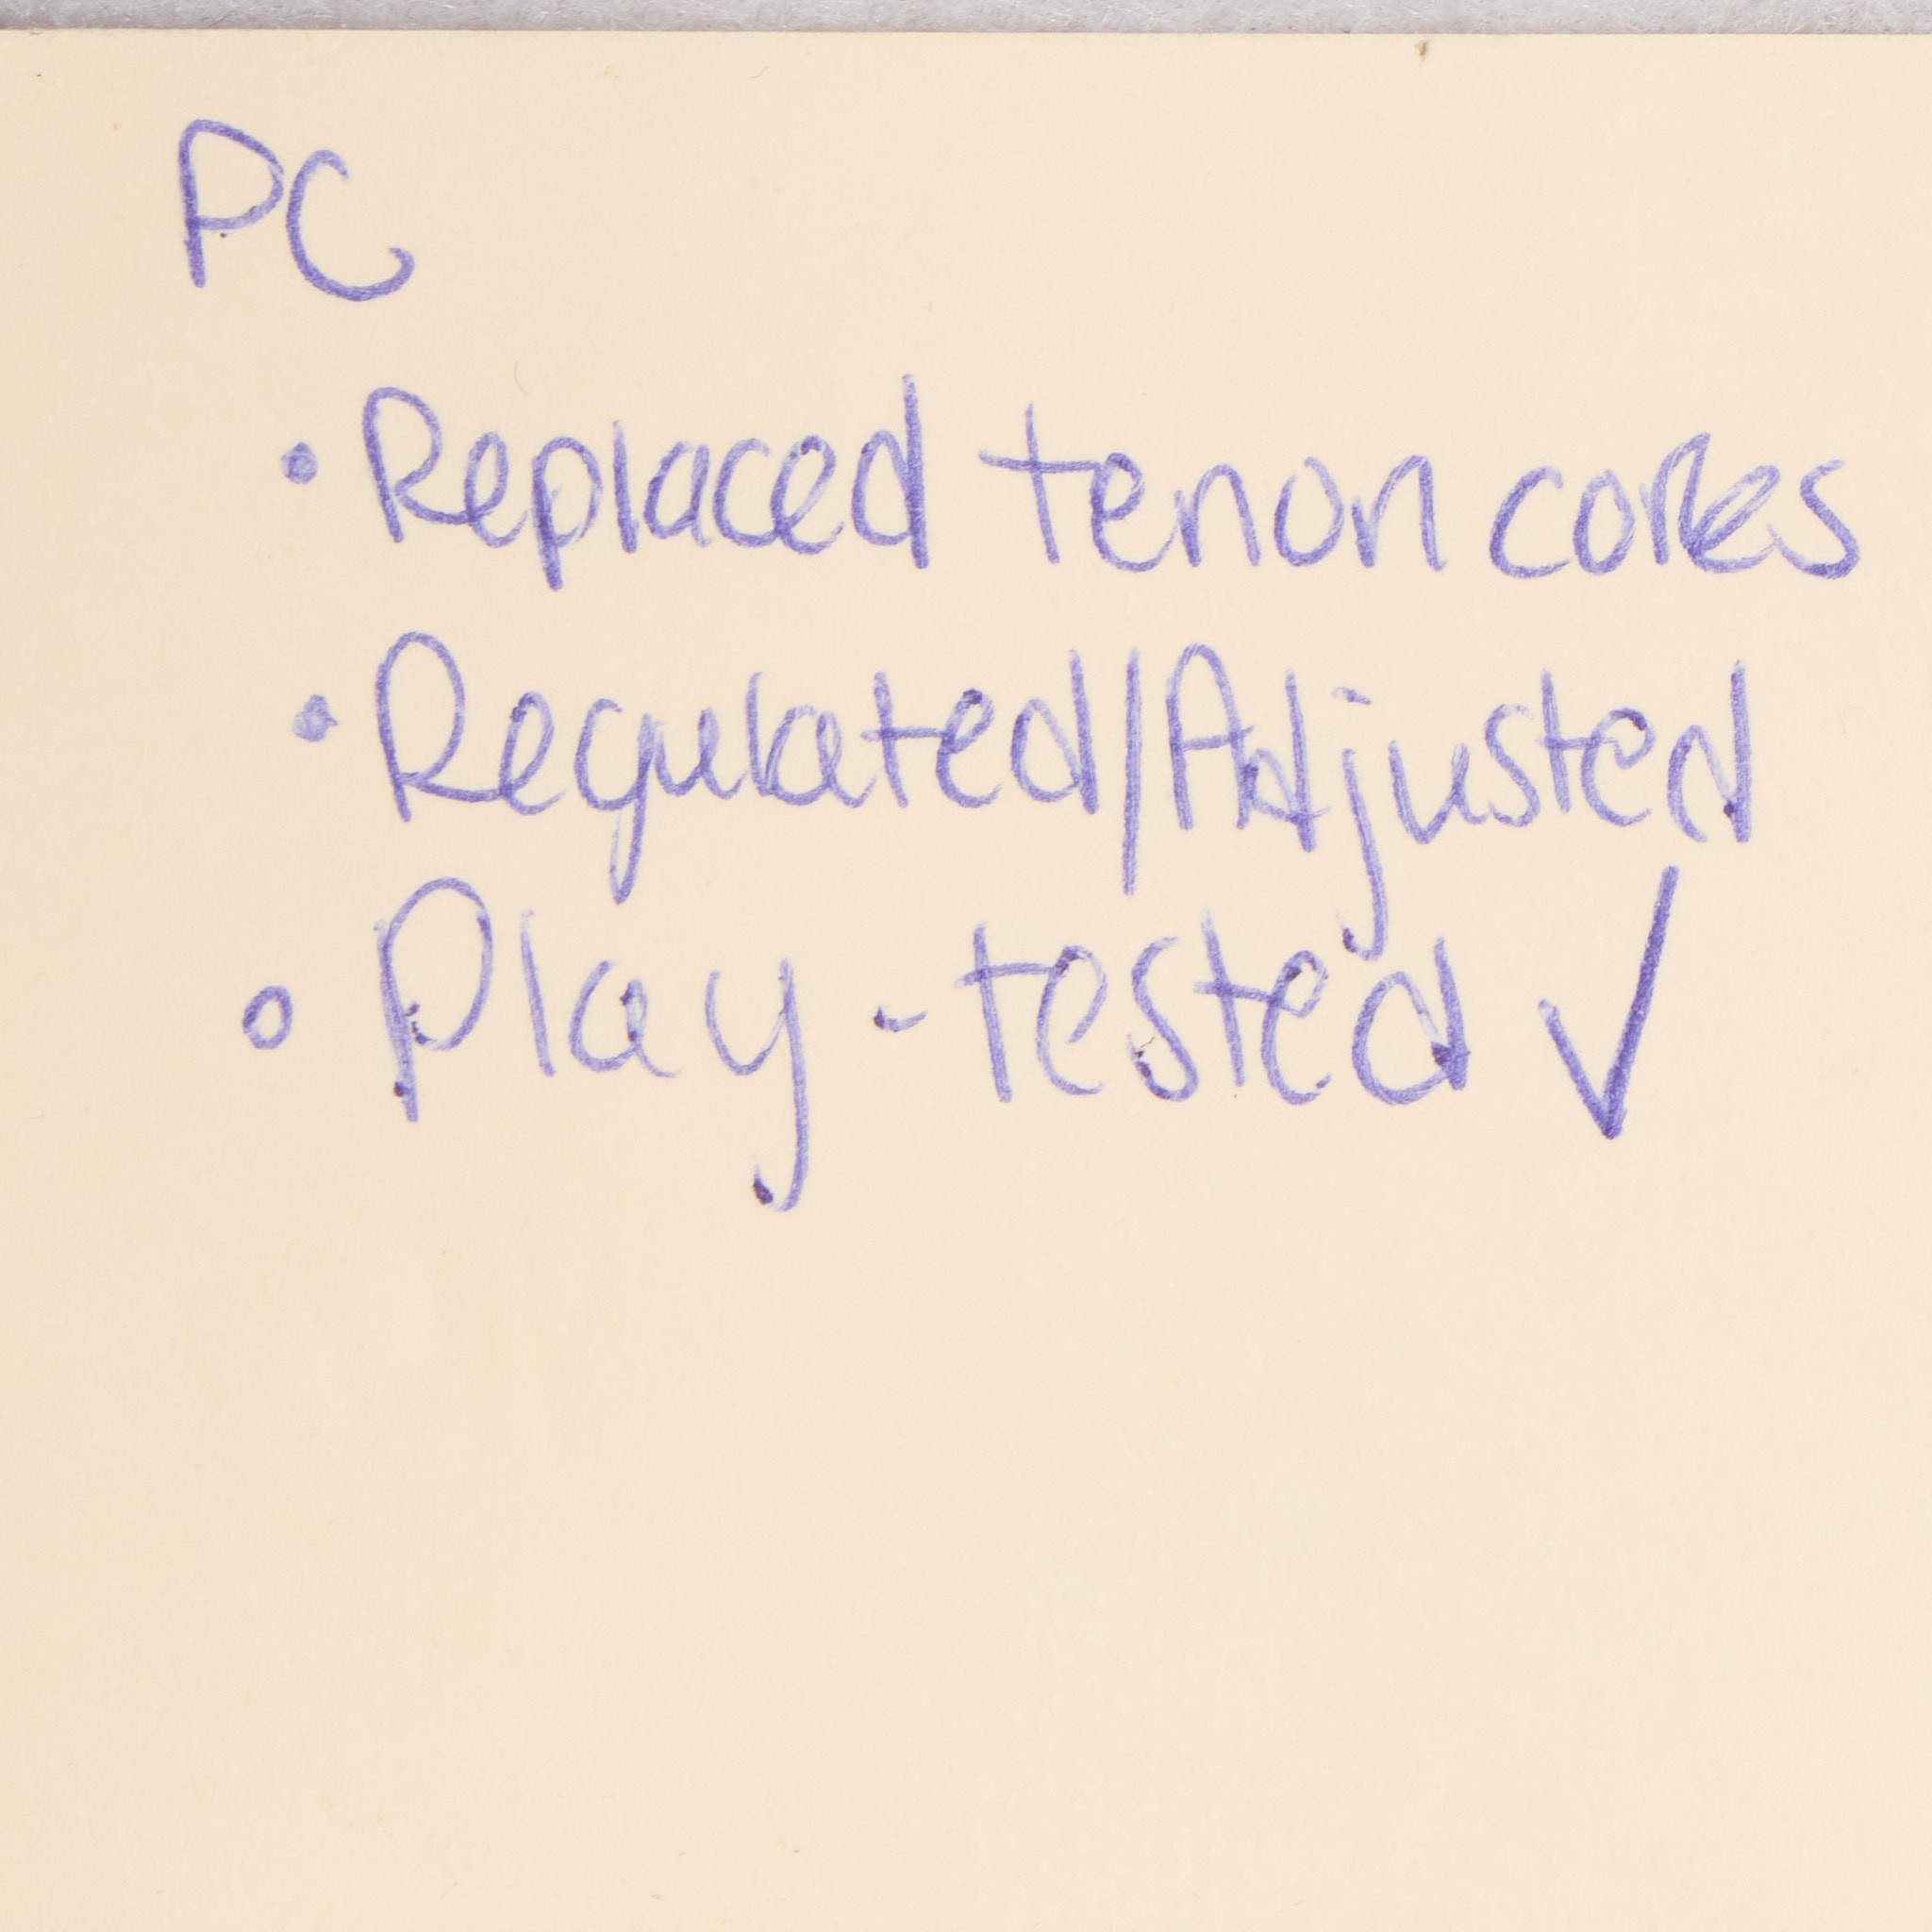 PC
• Replaced tenon cores
• Regulated/Adjusted
• Play-tested ✓